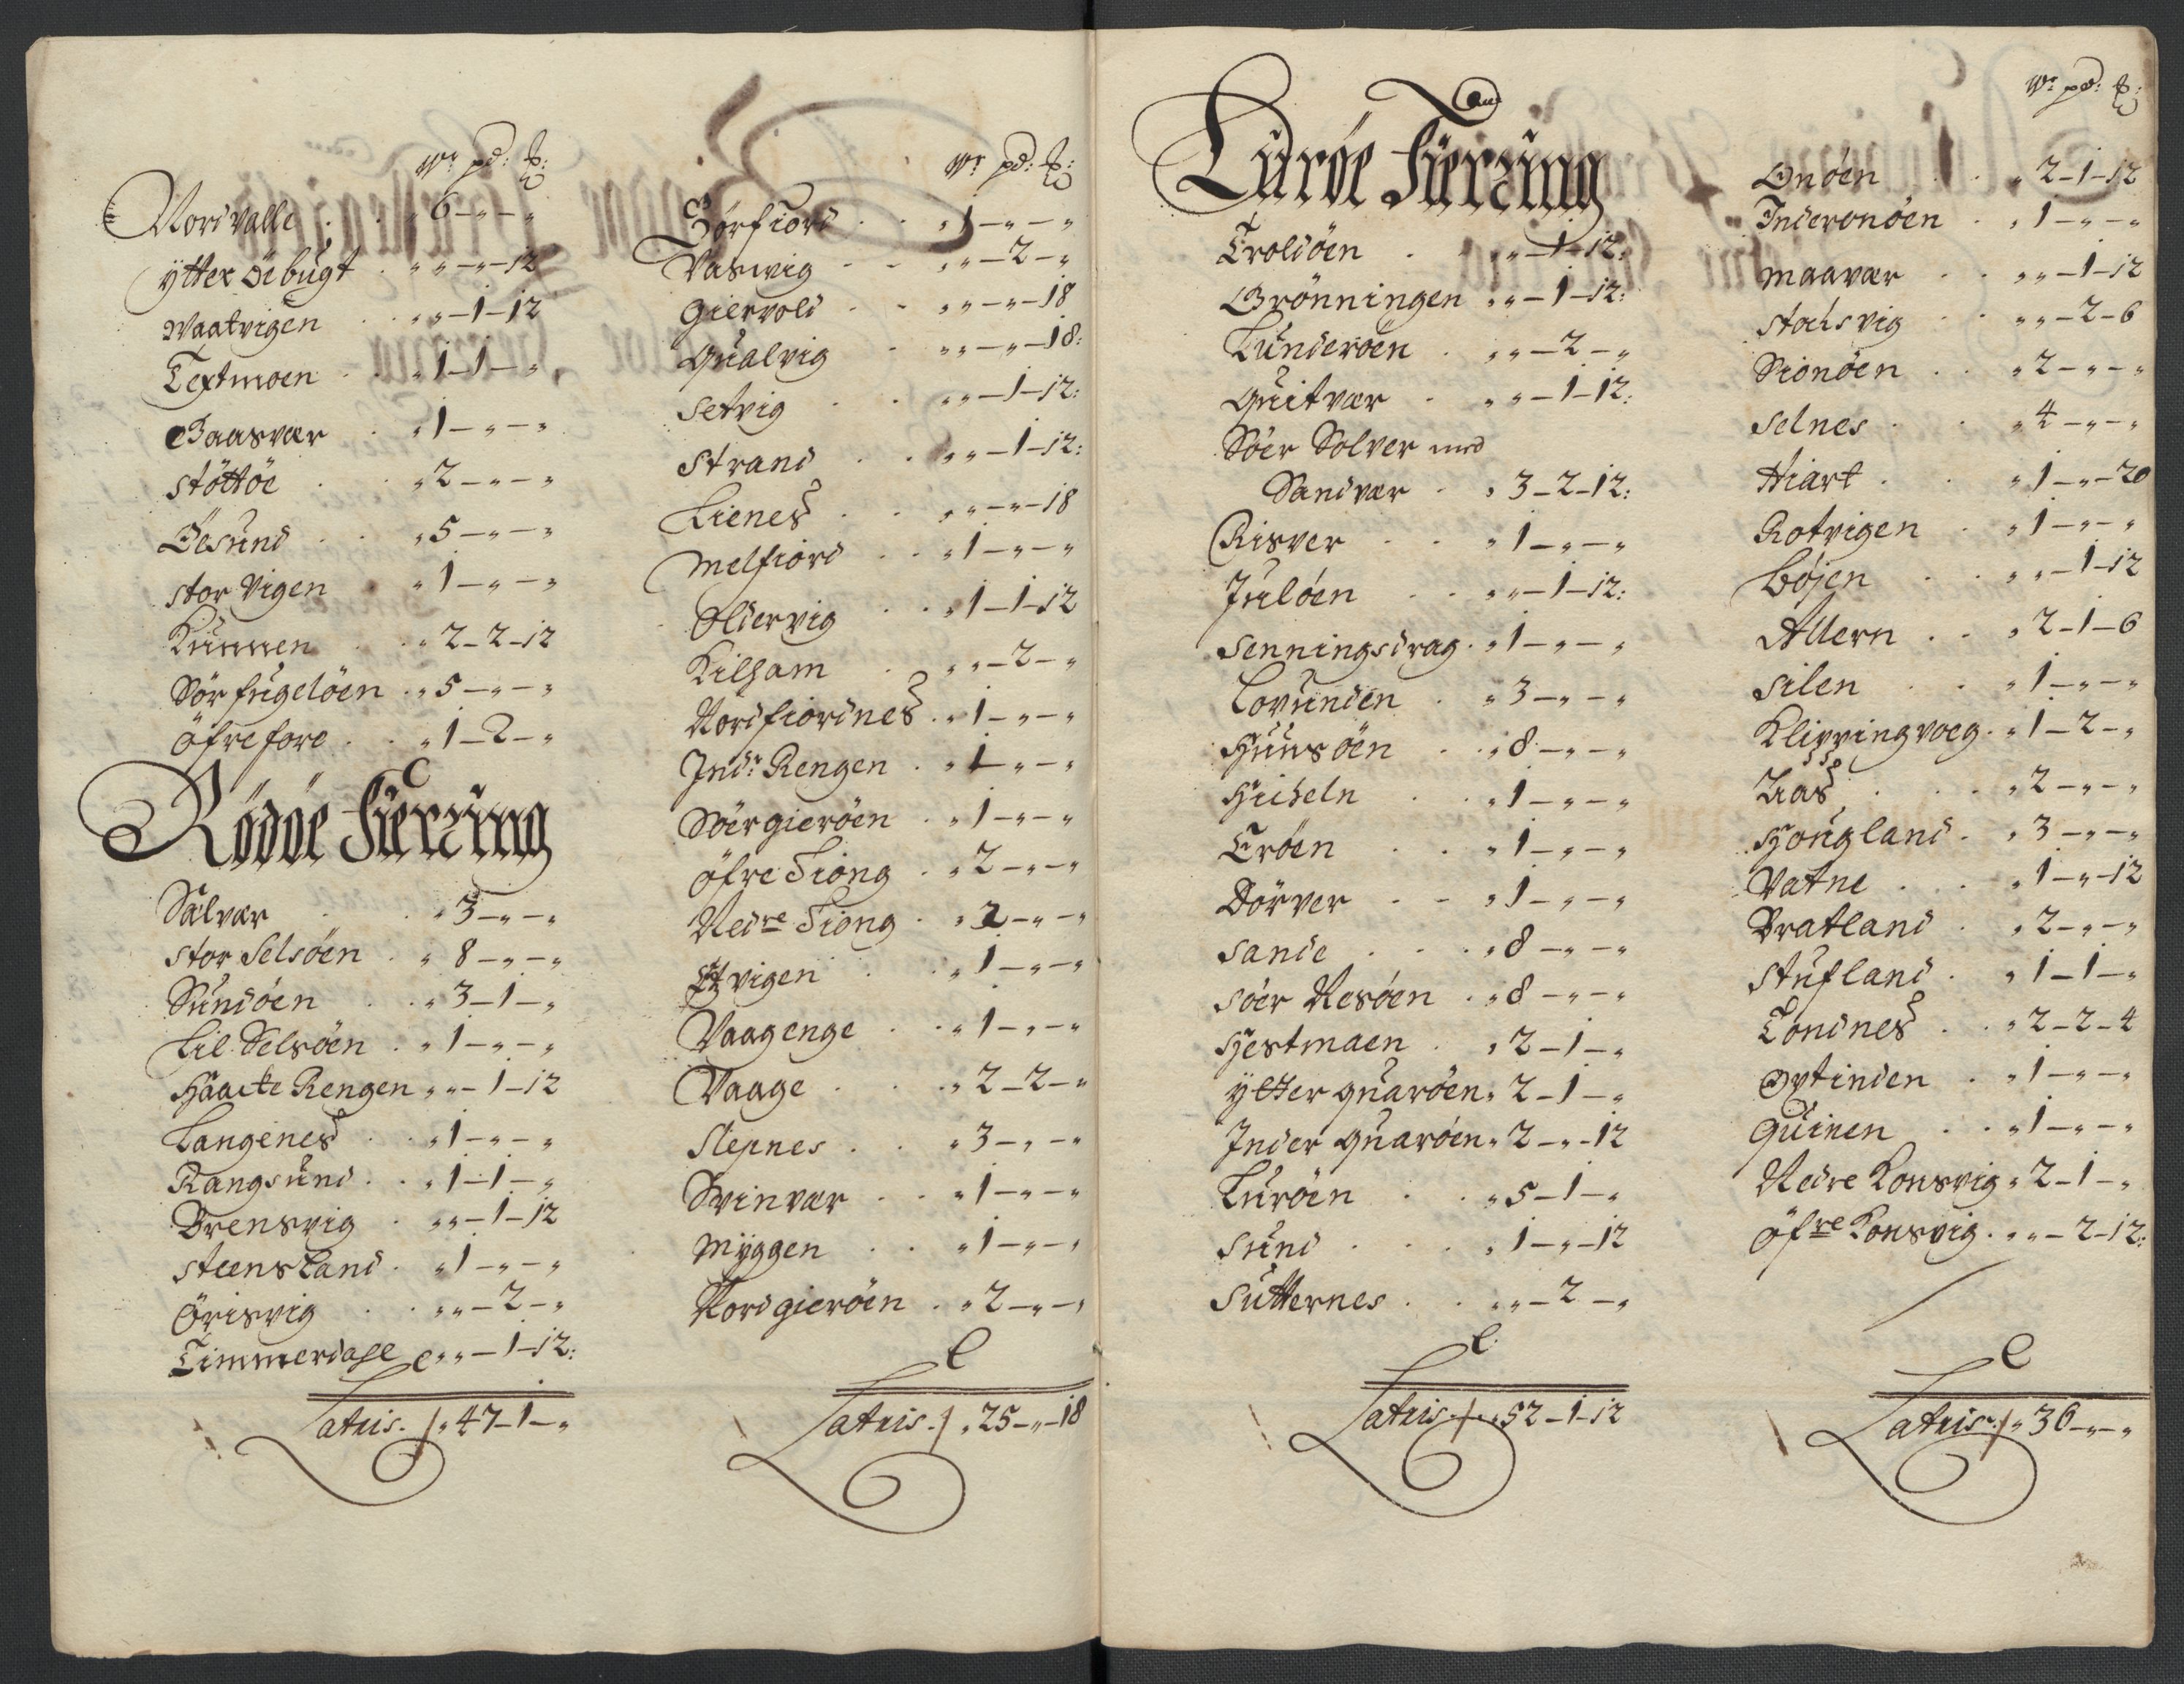 Wr pd: ℔:
Nordvalle . . „ 6 – „ – „
Ytter Öebugt . „ „ – „ – 12
Waatvigen . . „ „ – 1 – 12
Textmoen . . „ 1 – 1 – „
Gaasvær . „ 1 – „ – „
Støttöe . . „ 2 – „ – „
Öesund . . „ 5 – „ – „
Stor Vigen „ 1 – „ – „
Kunnen . . „ 2 – 2 – 12
Sör fugelöen . „ 5 – „ – „
Öfre fore . . „ 1 – 2 – „
Rödöe Fierzing
Sælvær . . „ 3 – „ – „
Stor Selsöen . „ 8 – „ – „
Sundöen . . „ 3 – 1 – „
Lil Selsöen . „ 1 – „ – „
Haacke Rengen „ „ – 1 – 12
Langenes . „ 1 – „ – „
Rangsund . . „ 1 – 1 – „
Brensvig . „ „ – 1 – 12
Steensland . „ 1 – „ – „
Örisvig . . „ „ – 2 – „
Timmerdahl „ „ – 1 – 12:
Lateris . „ 47 – 1 – „
Wr pd: ℔:
Börfiord . . „ 1 – „ – „
Vaswig . . „ „ – 2 – „
Giervold . . „ „ – „ – 18
Qualvig . „ „ – „ – 18:
Setvig . . „ „ – 1 – 12:
Strand . . „ „ – 1 – 12:
Lienes . . „ „ – „ – 18
Melfiord . . „ 1 – „ – „
Oldervig . . „ 1 – 1 – 12
Kilham . „ „ – 2 – „
Nordfiordnes . „ 1 – „ – „
Indr: Rengen . „ 1 – „ – „
Söergieröen . „ 1 – „ – „
Öfre Tiong . „ 2 – „ – „
Nedre Tiong . „ 2 – „ – „
vigen . . „ 1 – „ – „
Vaagenge . . „ 1 – „ – „
Vaage . . „ 2 – 2 – „
Slepnes . . „ 3 – „ – „
Svinvær . . „ 1 – „ – „
Myggen . . „ 1 – „ – „
Nordgieröen . „ 2 – „ – „
Lateris . „ 25 – „ – 18
Luröe Fierzing
Troldöen . „ „ – 1 – 12:
Grönningen „ „ – 1 – 12:
Lunderöen . „ „ – 2 – „
Quitvær . „ „ – 1 – 12:
Söer Solver med
Sandvær . „ 3 – 2 – 12:
Risver . . „ 1 – „ – „
Julöen . . „ „ – 1 – 12:
Senningsdrag . „ 1 – „ – „
Lovunden . „ 3 – „ – „
Huusöen . „ 8 – „ – „
Hickeln . . „ 1 – „ – „
Eröen . . „ 1 – „ – „
Dörver . . „ 1 – „ – „
Sande . . „ 8 – „ – „
Söer Nesöen . „ 8 – „ – „
Hestmaen . „ 2 – 1 – „
Ytter quaröen „ 2 – 1 – „
Inder quaröen „ 2 – „ – 12
Luröen . . „ 5 – 1 – „
Sund . . „ 1 – „ – 12
Sutternes . . „ „ – 2 – „
Lateris . „ 52 – 1 – 12
Wr pd: ℔:
Onöen . . „ 2 – 1 – 12
Inderonöen . „ 1 – „ – „
Maavær . . „ „ – 1 – 12
Stocksvig . „ „ – 2 – 6
Sionöen . . „ 2 – „ – „
Selnes . . „ 4 – „ – „
Hiart . . „ 1 – „ – 20
Rotvigen . „ 1 – „ – „
Böjen . . „ „ – 1 – 12
Allern . . „ 2 – 1 – 6
Silen . . „ 1 – „ – „
Klippingvoeg . „ 1 – 2 – „
. . „ 2 – „ – „
Hougland . „ 3 – „ – „
Vatne . . „ 1 – „ – 12
Bratland . „ 2 – „ – „
Stufland . „ 1 – 1 – „
Tondnes . . „ 2 – 2 – 4
Optinden . „ 1 – „ – „
Quinen . . „ 1 – „ – „
Nedre Konsvig „ 2 – 1 – „
Öfre Konsvig . „ „ – 2 – 12:
Lateris . „ 36 – „ – „